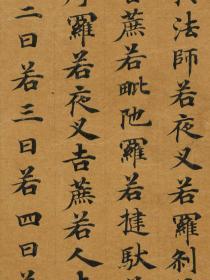 法師若夜叉若羅刹
蔗若毗陁羅若揵馱
羅若夜叉吉蔗若人
二日若三日若四日若